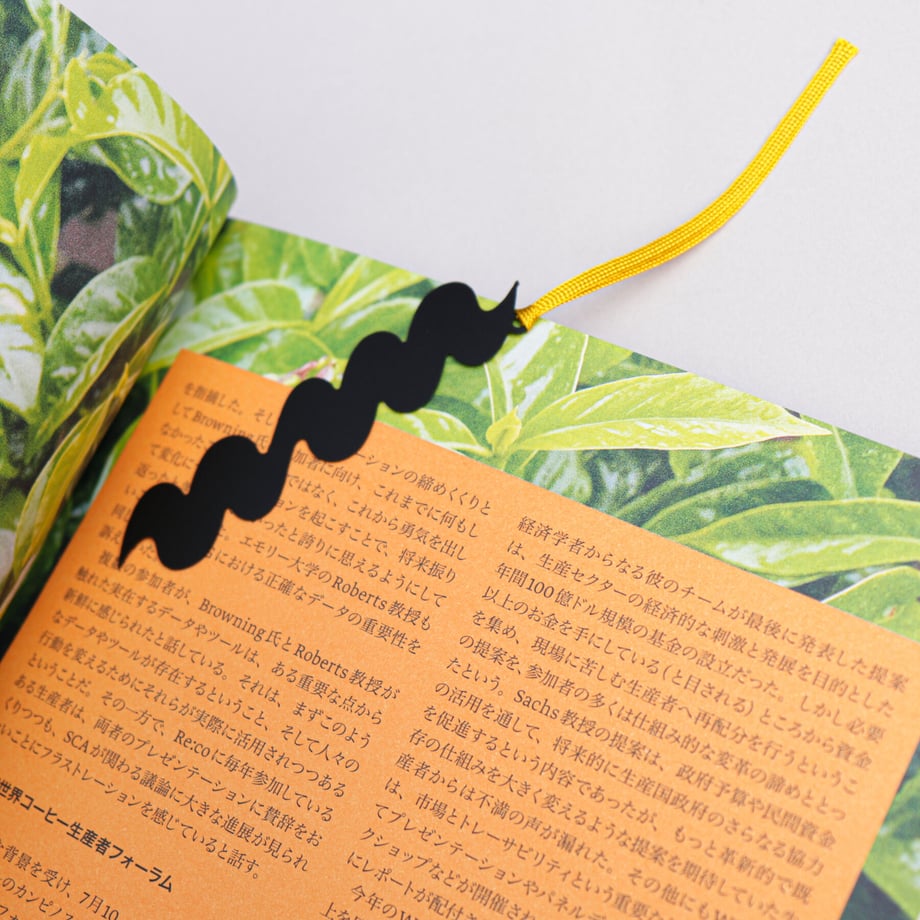 を指摘した。そし ーションの締めくくりと
してBrowning氏 加者に向け、これまでに何もし
なかった ではなく、これから勇気を出し
て変化に ションを起こすことで、将来振り
返った ったと誇りに思えるようにして
い エモリー大学のRoberts教授も
同 における正確なデータの重要性を
訴え
複数の参加者が、Browning氏とRoberts教授が
触れた実在するデータやツールは、ある重要な点から
新鮮に感じられたと話している。それは、まずこのよう
なデータやツールが存在するということ、そして人々の
行動を変えるためにそれらが実際に活用されつつある
ということだ。その一方で、Re:coに毎年参加している
ある生産者は、両者のプレゼンテーションに賛辞をお
くりつつも、SCAが関わる議論に大きな進展が見られ
ないことにフラストレーションを感じていると話す。
世界コーヒー生産者フォーラム
な背景を受け、7月10
のカンピナス
経済学者からなる彼のチームが最後に発表した提案
は、生産セクターの経済的な刺激と発展を目的とした
年間100億ドル規模の基金の設立だった。しかし必要
以上のお金を手にしている(と目される)ところから資金
を集め、現場に苦しむ生産者へ再配分を行うというこ
の提案を、参加者の多くは仕組み的な変革の諦めととっ
たという。Sachs教授の提案は、政府予算や民間資金
の活用を通して、将来的に生産国政府のさらなる協力
を促進するという内容であったが、もっと革新的で既
存の仕組みを大きく変えるような提案を期待していた
産者からは不満の声が漏れた。その他にも
は、市場とトレーサビリティという重要な
てプレゼンテーションやパネルデ
クショップなどが開催され
にレポートが配付さ
今年のW